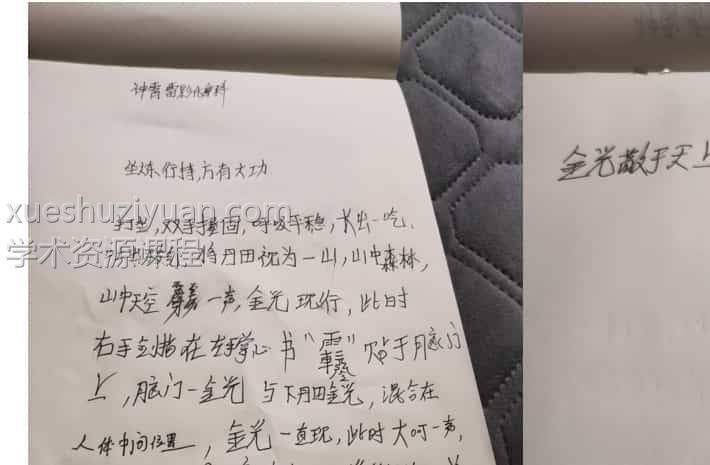 神霄雷影化身科
坐炼行持,方有大功
打坐,双手握固,呼吸平稳,大出一吃、
将丹田视为一山,山中森林,
山中天空 一声,金光现行,此时
右手剑指在左手掌心书“ ”贴于脑门
上,脑门一金光与下丹田金光,混合在
人体中间位置,金光一直现,此时大呵一声,
金光散于天上
xueshuziyuan.com
学术资源课程